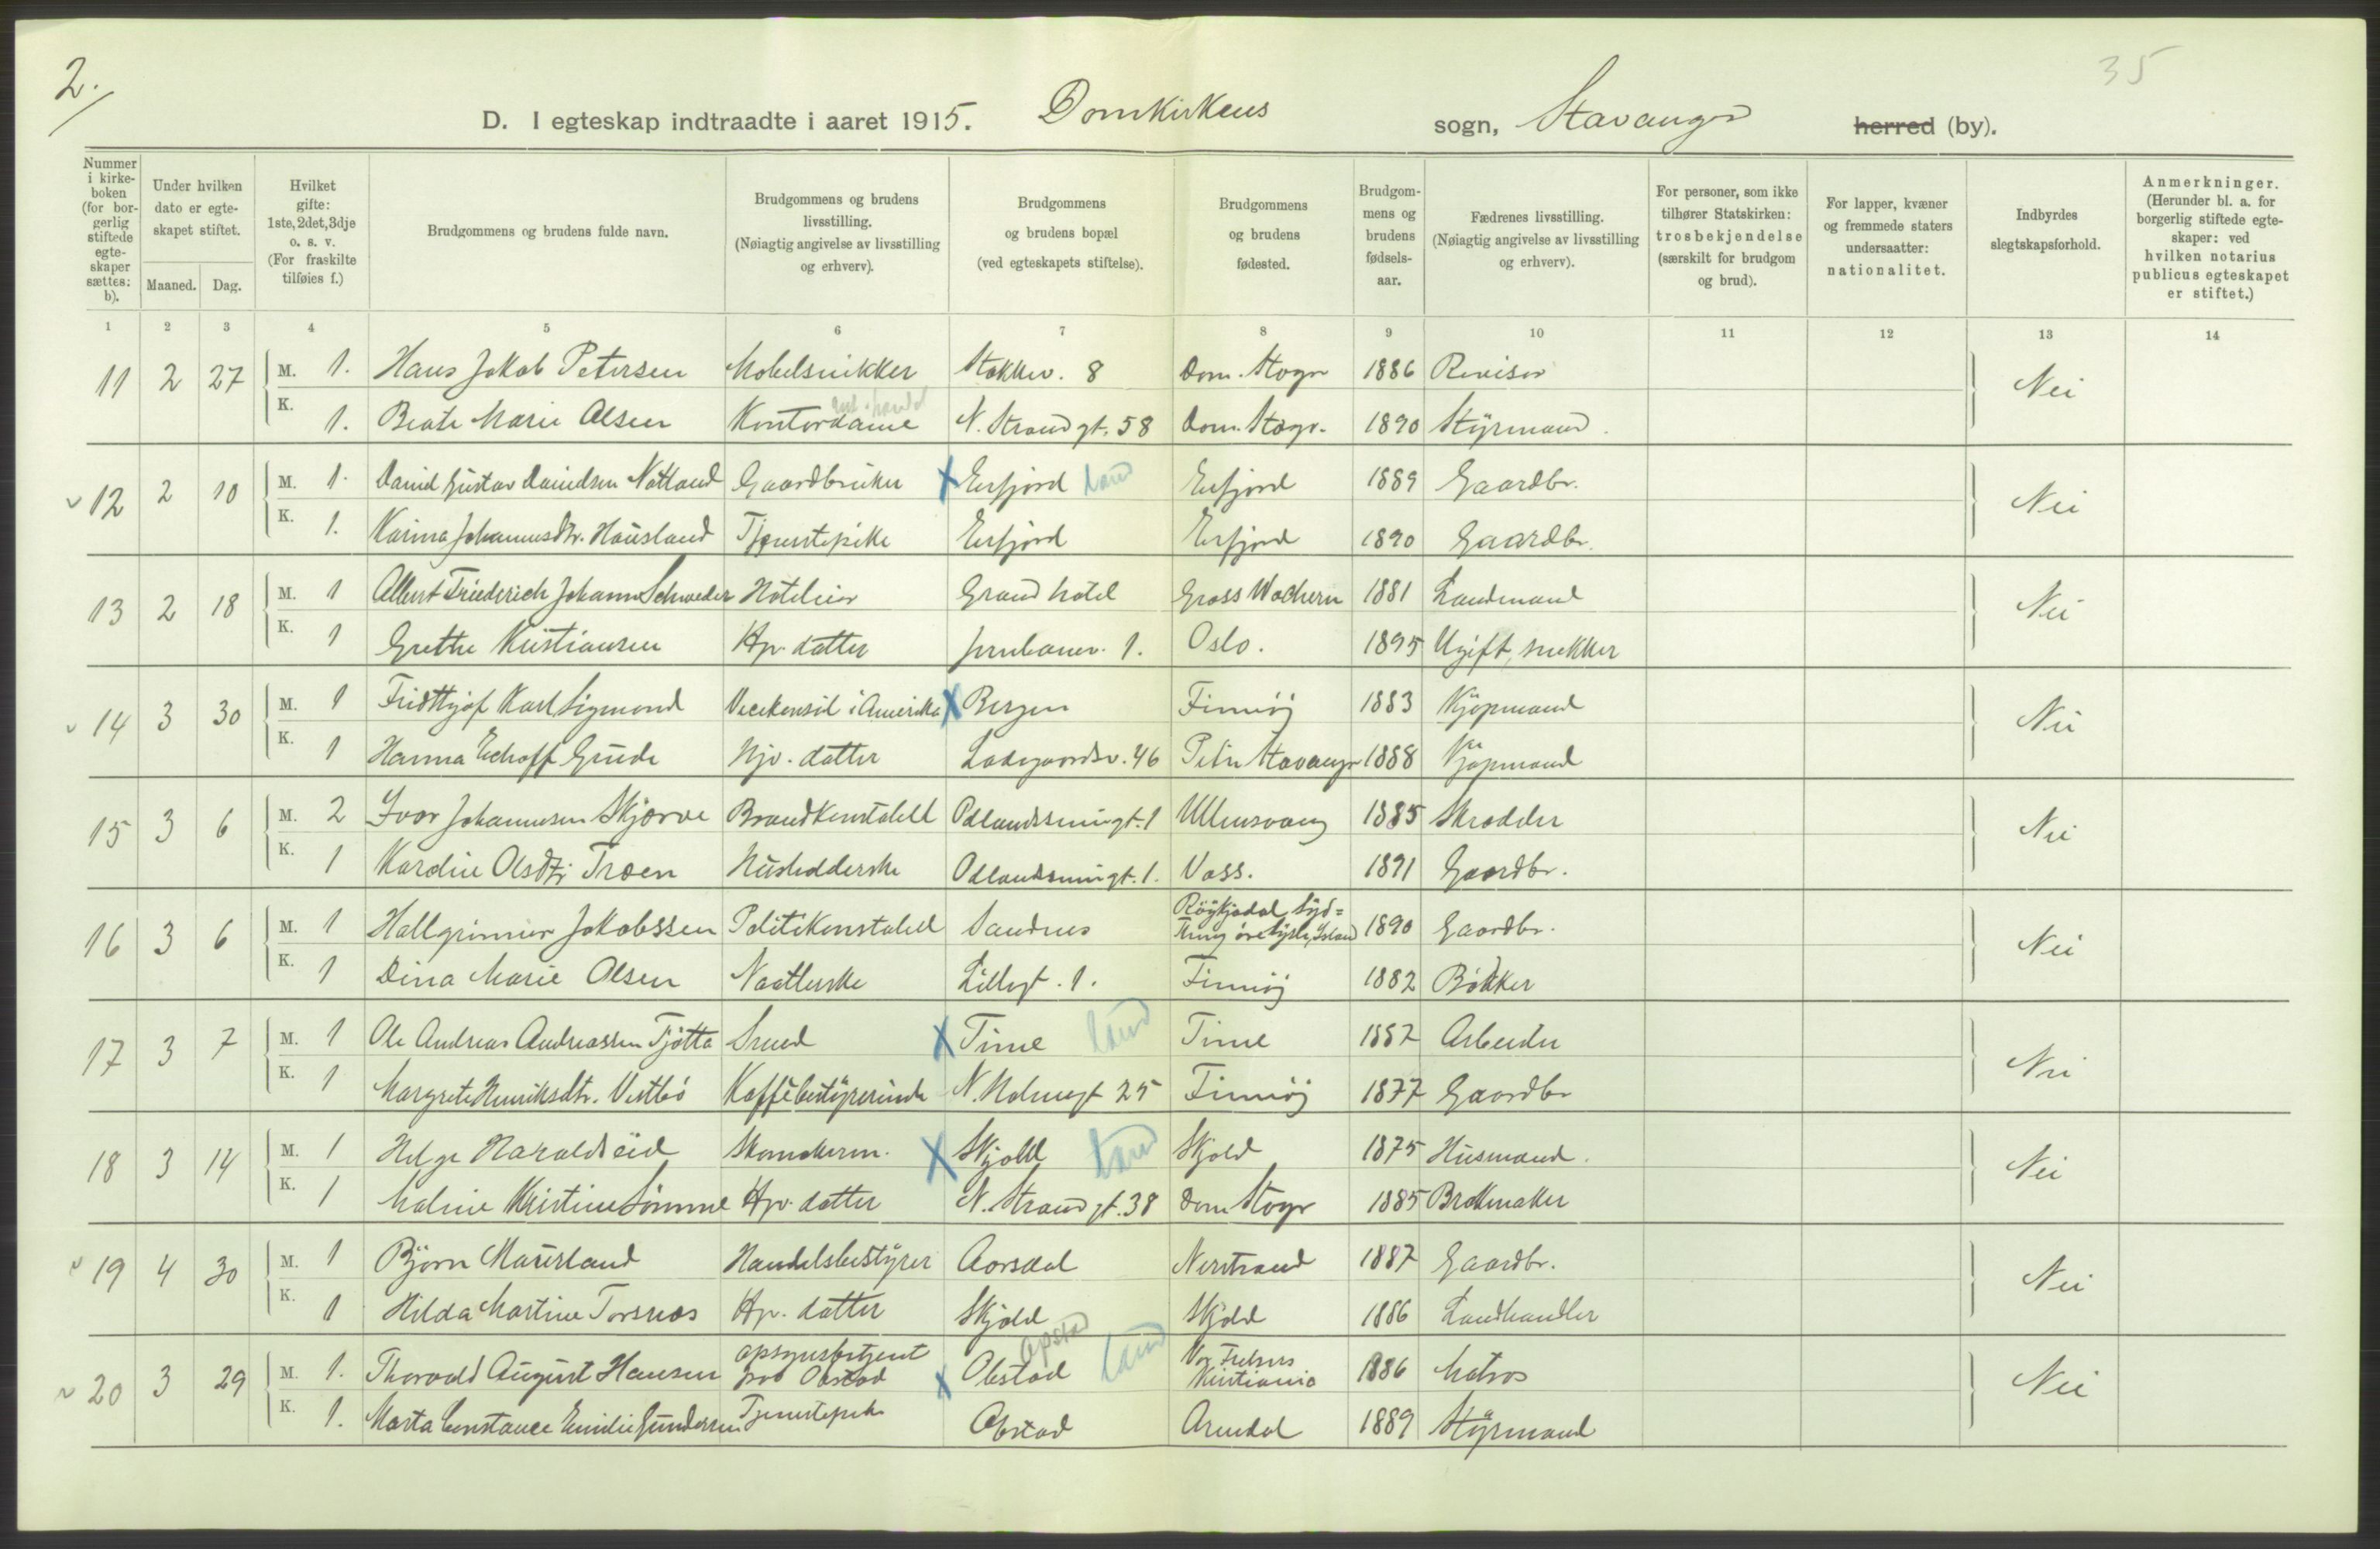 2.
35
D. I egteskap indtraadte i aaret 1915. Domkirkens sogn, Stavanger herred (by).
Nummer i kirkeboken (for borgerlig stiftede egteskaper sættes: b).
Under hvilken dato er egteskapet stiftet.
Maaned. Dag.
Hvilket gifte: 1ste, 2det, 3dje o. s. v. (For fraskilte tilføies f.)
Brudgommens og brudens fulde navn.
Brudgommens og brudens livsstilling. (Nøiagtig angivelse av livsstilling og erhverv).
Brudgommens og brudens bopæl (ved egteskapets stiftelse).
Brudgommens og brudens fødested.
Brudgommens og brudens fødselsaar.
Fædrenes livsstilling. (Nøiagtig angivelse av livsstilling og erhverv).
For personer, som ikke tilhører Statskirken: trosbekjendelse (særskilt for brudgom og brud).
For lapper, kvæner og fremmede staters undersaatter: nationalitet.
Indbyrdes slegtskapsforhold.
Anmerkninger. (Herunder bl. a. for borgerlig stiftede egteskaper: ved hvilken notarius publicus egteskapet er stiftet.)
1 2 3 4 5 6 7 8 9 10 11 12 13 14
11 2 27 M. 1. Hans Jakob Petersen Møbelsnikker Stokkv. 8 Dom. Stvgr 1886 Revisor Nei
K. 1. Beate Marie Olsen Kontordame N. Strandgt. 58 Dom. Stvgr. 1890 Styrmand.
12 2 10 M. 1. David Gustav Davidsen Natland Gaardbruker x Erfjord Land Erfjord 1889 Gaardbr. Nei
K. 1. Karina Johannesdtr. Hausland Tjenestepike Erfjord Erfjord 1890 Gaardbr.
13 2 18 M. 1 Albert Friederich Johann Schweder Hoteleier Grand hotel Gross Wachern 1881 Landmand Nei
K. 1 Grethe Kristiansen Hp. datter Jernbanev. 1. Oslo. 1895 Ugift, snekker
14 3 30 M. 1 Fridthjof Karl Sigmond Vicekonsul i Amerika x Bergen Finnöj 1883 Kjöpmand Nei
K. 1 Hanna Eckhoff Grude Hjv. datter Ladegaardsv. 46 Petri Stavanger 1888 Kjöpmand
15 3 6 M. 2 Ivar Johannesen Skjærve Brandkonstabell Odlandssmugt. 1 Ullensvang 1885 Skrædder Nei
K. 1 Kardine Olsdtr Træen Husholderske Odlandssmugt. 1. Voss. 1891 Gaardbr.
16 3 6 M. 1 Hallgrimur Jakobssen Politikonstabell Sandnes 1890 Gaardbr. Nei
K. 1 Dina Marie Olsen Naatlerske Lillegt. 1. Finnöj 1882 Bökker
17 3 7 M. 1 Ole Andreas Andreassen Tjötta Smed x Time Land Time 1887 Arbeider Nei
K. 1 Margrete Henriksdtr. Vestbö Kaffébestyrerinde N. Holmegt 25 Finnöj 1877 Gaardbr
18 3 14 M. 1 Helge Haraldseid Skomakerm. x Skjold Land Skjold 1875 Husmand. Nei
K. 1 Maline Kristine Sömme Hp. datter N. Strandgt. 38 Dom Stvgr 1885 Blokmaker
19 4 30 M. 1 Björn Mæusland Handelsbestyrer Aarsdal Nerstrand 1887 Gaardbr. Nei
K. 1 Hilda Martine Torsnæs Hp. datter Skjold Skjold 1886 Landhandler
20 3 29 M. 1. Thorvald August Hansen opsynsbetjent paa Obstad x Obstad Opstad Land Vor Frelsers Kristiania 1886 Matros Nei
K. 1. Marta Constance Emilie Gundersen Tjenestepike Obstad Arendal 1889 Styrmand